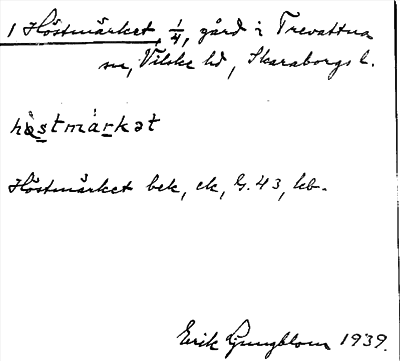 1 Höstmärket, 1/4, gård i Trevattna
sn, Vilske hd, Skaraborgs l.
Höstmärket bek, ek, G. 43, kb.
Erik Ljungblom 1939.